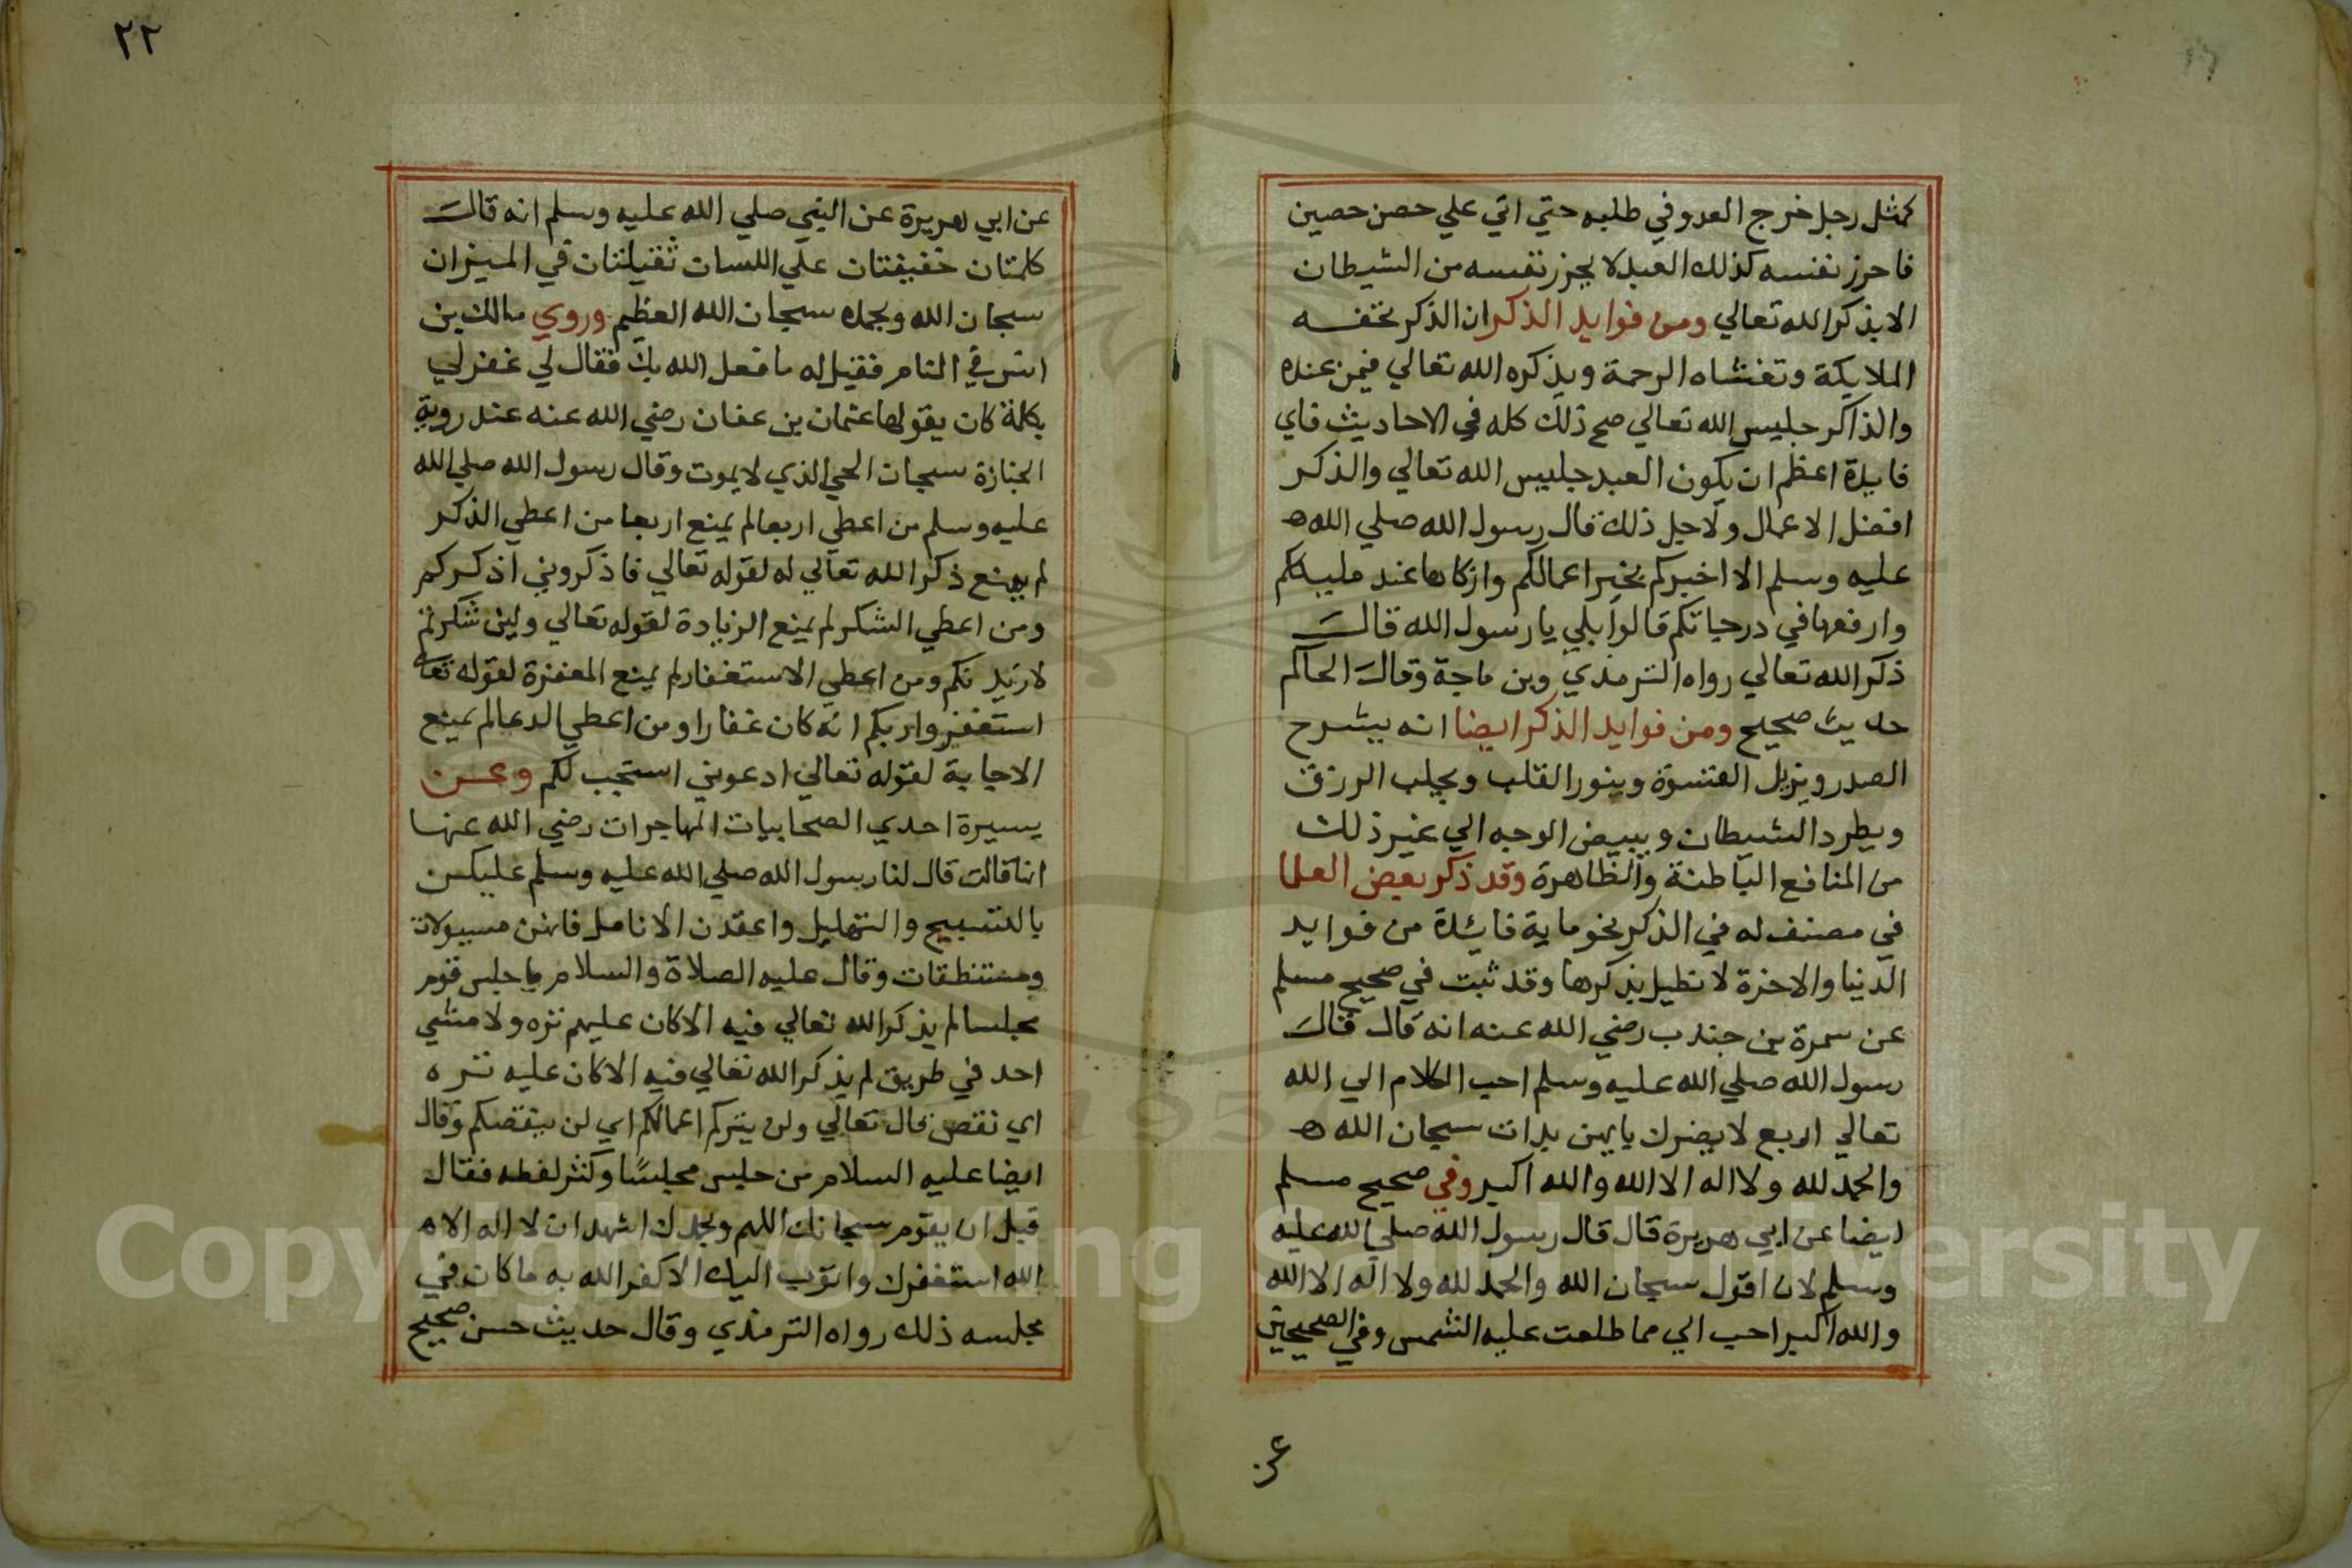 كمثل رجل خرج العدو في طلبه حتي اتي علي حصن حصين
فاحرز نفسه كذلك العبد لا يحرز نفسه من الشيطان
الا بذكر الله تعالي ومن فوايد الذكر ان الذكر تحفه
الملايكة وتغشاه الرحمة ويذكره الله تعالي فيمن عنده
والذاكر جليس الله تعالي صح ذلك كله في الاحاديث فاي
فايدة اعظم ان يكون العبد جليس الله تعالي والذكر
افضل الاعمال ولاجل ذلك قال رسول الله صلي الله
عليه وسلم الا اخبركم بخير اعمالكم وازكاها عند مليككم
وارفعها في درجاتكم قالوا بلي يا رسول الله قال
ذكر الله تعالي رواه الترمذي وبن ماجة وقال الحاكم
حديث صحيح ومن فوايد الذكر ايضا انه يشرح
الصدر ويزيل القسوة وينور القلب ويجلب الرزق
ويطرد الشيطان ويبيض الوجه الي غير ذلك
من المنافع الباطنة والظاهرة وقد ذكر بعض العلما
في مصنف له في الذكر نحو ماية فائدة من فوايد
الدنيا والاخرة لا نطيل بذكرها وقد ثبت في صحيح مسلم
عن سمرة بن جندب رضي الله عنه انه قال قال
رسول الله صلي الله عليه وسلم احب الكلام الي الله
تعالي اربع لا يضرك بايهن بدات سبحان الله
والحمد لله ولا اله الا الله والله اكبر وفي صحيح مسلم
ايضا عن ابي هريرة قال قال رسول الله صلي الله عليه
وسلم لان اقول سبحان الله والحمد لله ولا اله الا الله
والله اكبر احب الي مما طلعت عليه الشمس وفي الصحيحين
عن
٢٢
عن ابي هريرة عن النبي صلي الله عليه وسلم انه قال
كلمتان خفيفتان علي اللسان ثقيلتان في الميزان
سبحان الله وبحمده سبحان الله العظيم وروي مالك بن
انس في المنام فقيل له ما فعل الله بك فقال لي غفر لي
بكلمة كان يقولها عثمان بن عفان رضي الله عنه عند روية
الجنازة سبحان الحي الذي لا يموت وقال رسول الله صلي الله
عليه وسلم من اعطي اربعا لم يمنع اربعا من اعطي الذكر
لم يمنع ذكر الله تعالي له لقوله تعالي فاذكروني اذكركم
ومن اعطي الشكر لم يمنع الزيادة لقوله تعالي ولين شكرتم
لازيدنكم ومن اعطي الاستغفار لم يمنع المغفرة لقوله تعالي
استغفروا ربكم انه كان غفارا ومن اعطي الدعا لم يمنع
الاجابة لقوله تعالي ادعوني استجب لكم وعن
يسيرة احدي الصحابيات المهاجرات رضي الله عنها
انها قالت قال لنا رسول الله صلي الله عليه وسلم عليكن
بالتسبيح والتهليل واعقدن الانامل فانهن مسيولات
ومستنطقات وقال عليه الصلاة والسلام ما جلس قوم
مجلسا لم يذكر الله تعالي فيه الا كان عليهم تره ولا مشي
احد في طريق لم يذكر الله تعالي فيه الا كان عليه تره
اي نقص قال تعالي ولن يتركم اعمالكم اي لن ينقصكم وقال
ايضا عليه السلام من جلس مجلسًا وكثر لغطه فقال
قبل ان يقوم سبحانك اللهم وبحمدك اشهد ان لا اله الا
الله استغفرك واتوب اليك الا كفر الله به ما كان في
مجلسه ذلك رواه الترمذي وقال حديث حسن صحيح
Copyright © King Saud University
1957